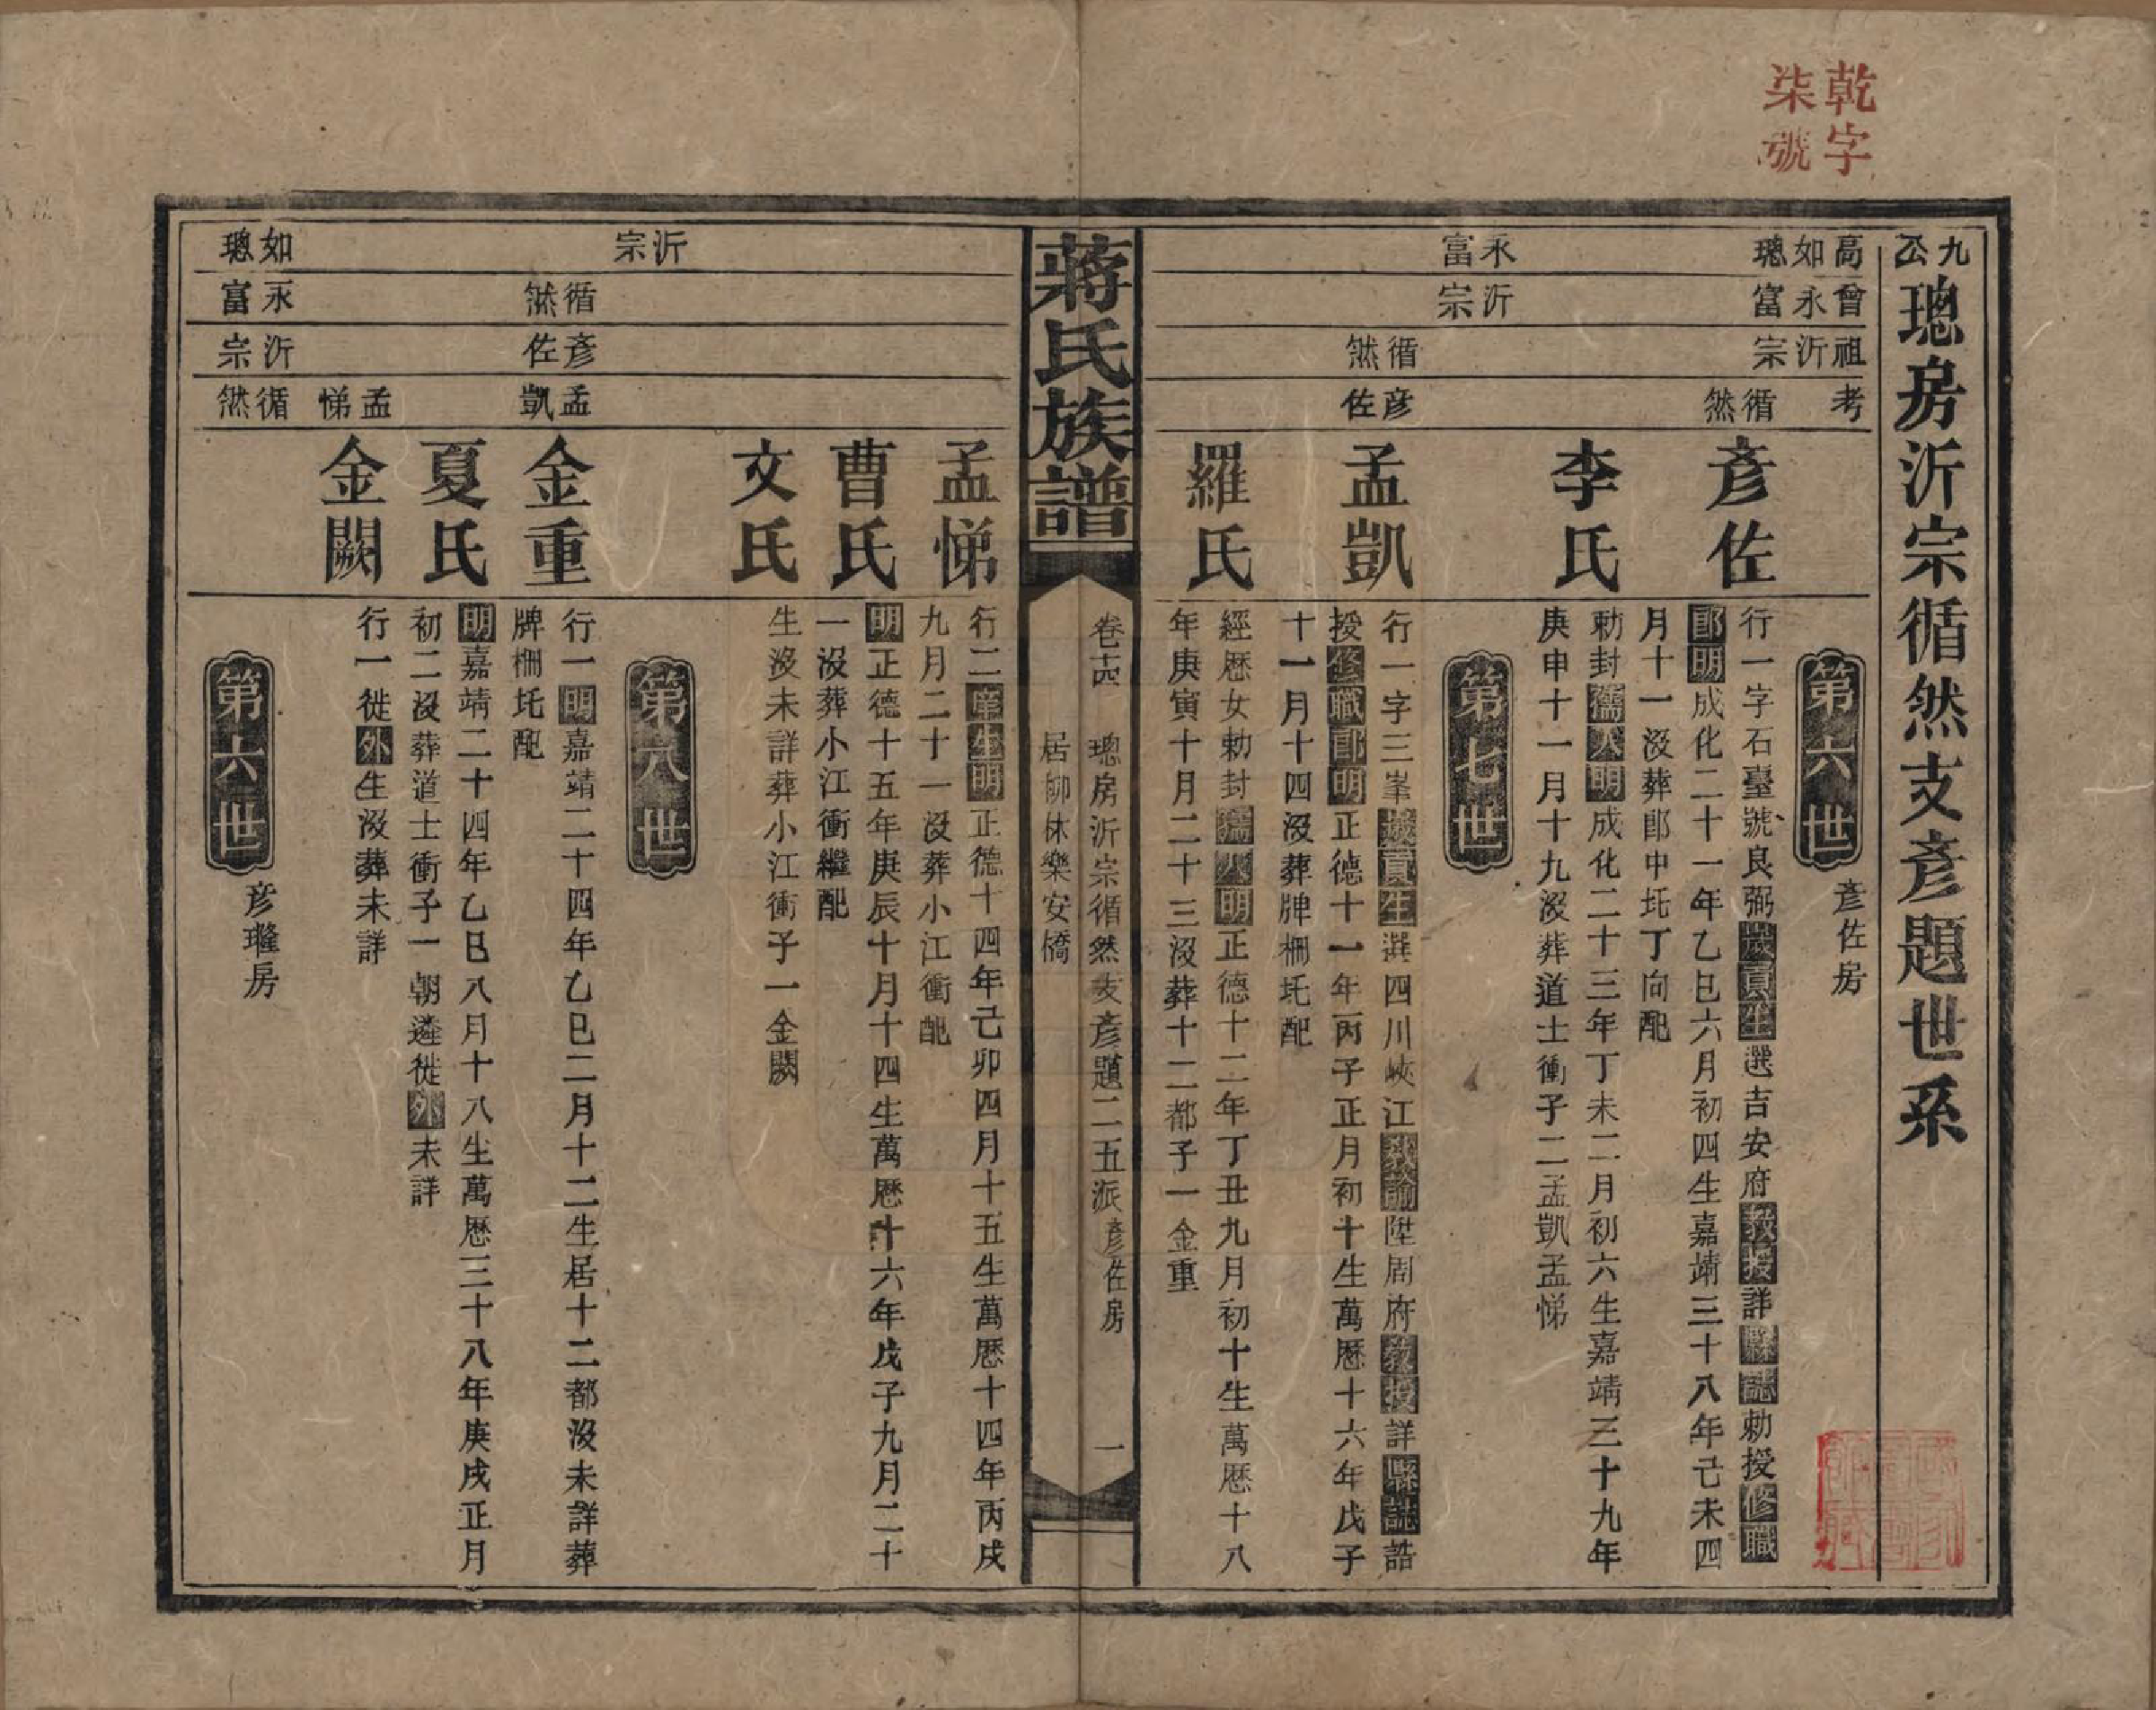 乾字
柒號
九公璁房沂宗循然支彥題世系
高如璁
曾永富
祖沂宗
考循然
第六世
彥佐房
彥佐
行一字石臺號良弼歲貢生選吉安府教授詳縣誌勅授修職
郎明成化二十一年乙巳六月初四生嘉靖三十八年己未四
月十一沒葬郎中坵丁向配
李氏
勅封孺人明成化二十三年丁未二月初六生嘉靖三十九年
庚申十一月十九沒葬道士衝子二孟凱孟悌
第七世
永富
沂宗
循然
彥佐
孟凱
行一字三峯歲貢生選四川峽江教諭陞周府教授詳縣誌誥
授修職郎明正德十一年丙子正月初十生萬厯十六年戊子
十一月十四沒葬牌柵坵配
羅氏
經歷女勅封孺人明正德十二年丁丑九月初十生萬厯十八
年庚寅十月二十三沒葬十二都子一金重
蔣氏族譜
卷十四
璁房沂宗循然支彥題二五派彥佐房
居師林樂安橋
一
孟悌
行二庠生明正德十四年己卯四月十五生萬厯十四年丙戌
九月二十一沒葬小江衝配
曹氏
明正德十五年庚辰十月十四生萬厯十六年戊子九月二十
一沒葬小江衝繼配
文氏
生沒未詳葬小江衝子一金闕
第八世
沂宗
循然
彥佐
孟凱
金重
行一明嘉靖二十四年乙巳二月十二生居十二都沒未詳葬
牌柵坵配
夏氏
明嘉靖二十四年乙巳八月十八生萬厯三十八年庚戌正月
初二沒葬道士衝子一朝遴徙外未詳
孟悌
金闕
行一徙外生沒葬未詳
第六世
彥㻶房
如璁
永富
沂宗
循然